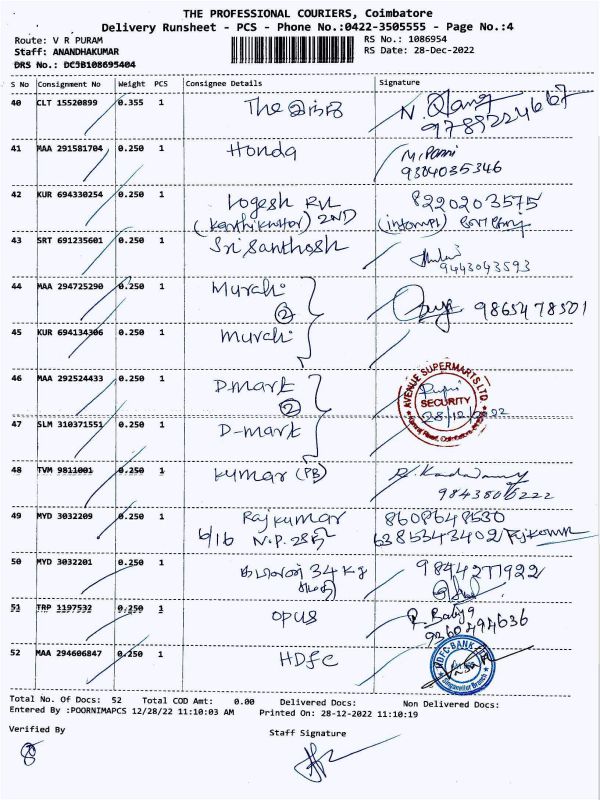 THE PROFESSIONAL COURIERS, Coimbatore
Delivery Runsheet - PCS - Phone No.:0422-3505555 - Page No.:4
Route: V R PURAM
RS No.: 1086954
Staff: ANANDHAKUMAR
RS Date: 28-Dec-2022
DRS No.: DCJB108695404
S No Consignment No Weight PCS Consignee Details Signature
40 CLT 15520899 0.355 1 The இந்து
41 MAA 291581704 0.250 1 Honda
9384035346
42 KUR 694330254 0.250 1 Logesh 8220203575
2ND
43 SRT 691235601 0.250 1 Sri Santhosh
9443043593
44 MAA 294725290 0.250 1 Murali 9865478501
②
45 KUR 694134306 0.250 1 Murali
46 MAA 292524433 0.250 1 D-mart
②
AVENUE SUPERMARTS LTD
SECURITY
28/12/2022
47 SLM 310371551 0.250 1 D-mart
48 TVM 9811001 0.250 1 Kumar (PB)
49 MYD 3032209 0.250 1 Rajkumar 8608648530
6/16 N.P. 6385343402/ Rjkumar
50 MYD 3032201 0.250 1 34 kg 9894277922
51 TRP 1197532 0.250 1 opus
9360494636
52 MAA 294606847 0.250 1 HDFC
HDFC BANK
Total No. Of Docs: 52 Total COD Amt: 0.00 Delivered Docs: Non Delivered Docs:
Entered By :POORNIMAPCS 12/28/22 11:10:03 AM Printed On: 28-12-2022 11:10:19
Verified By
Staff Signature